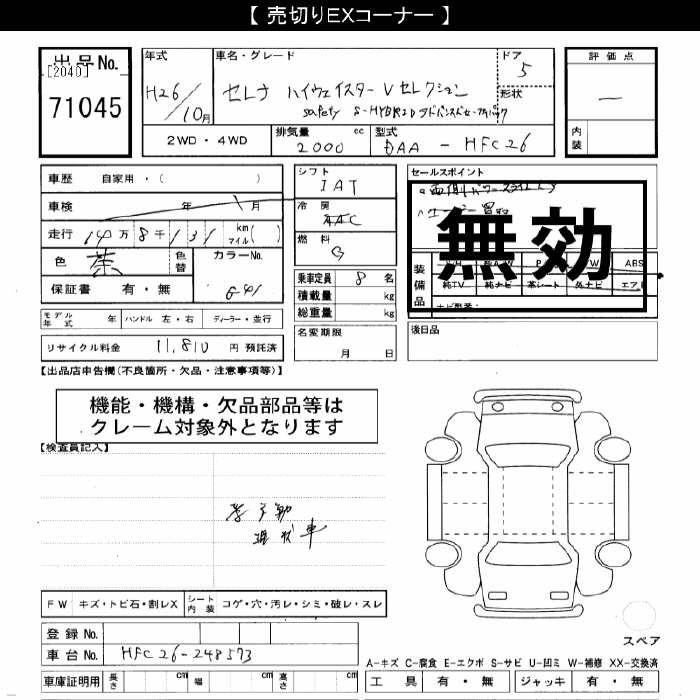 【 売切りEXコーナー 】
出品No.
[2040]
71045
年式
H26/10月
車名・グレード
セレナ ハイウェイスター V セレクション
safety S-HYBRID
ドア
5
形状
評価点
—
内装
2WD・4WD
排気量 cc
2000
型式
DAA - HFC26
車歴 自家用・( )
車検 年 月
走行 14万8千131 km マイル( )
色 茶 色替 カラーNo.
G41
保証書 有・無
モデル年式 年 ハンドル 左・右 ディーラー・並行
リサイクル料金 11,810 円 預託済
シフト
IAT
冷房
AAC
燃料
G
乗車定員 8 名
積載量 kg
総重量 kg
名変期限
月 日
セールスポイント
無効
装備品
ABS
純TV 純ナビ 革シート 外ナビ エアB
後日品
【出品店申告欄(不良箇所・欠品・注意事項等)】
機能・機構・欠品部品等は
クレーム対象外となります
【検査員記入】
車
FW キズ・トビ石・割レX シート内装 コゲ・穴・汚レ・シミ・破レ・スレ
登録No.
車台No. HFC26-248573
車庫証明用 長さ cm 幅 cm 高さ cm
スペア
A-キズ C-腐食 E-エクボ S-サビ U-凹ミ W-補修 XX-交換済
工具 有・無 ジャッキ 有・無